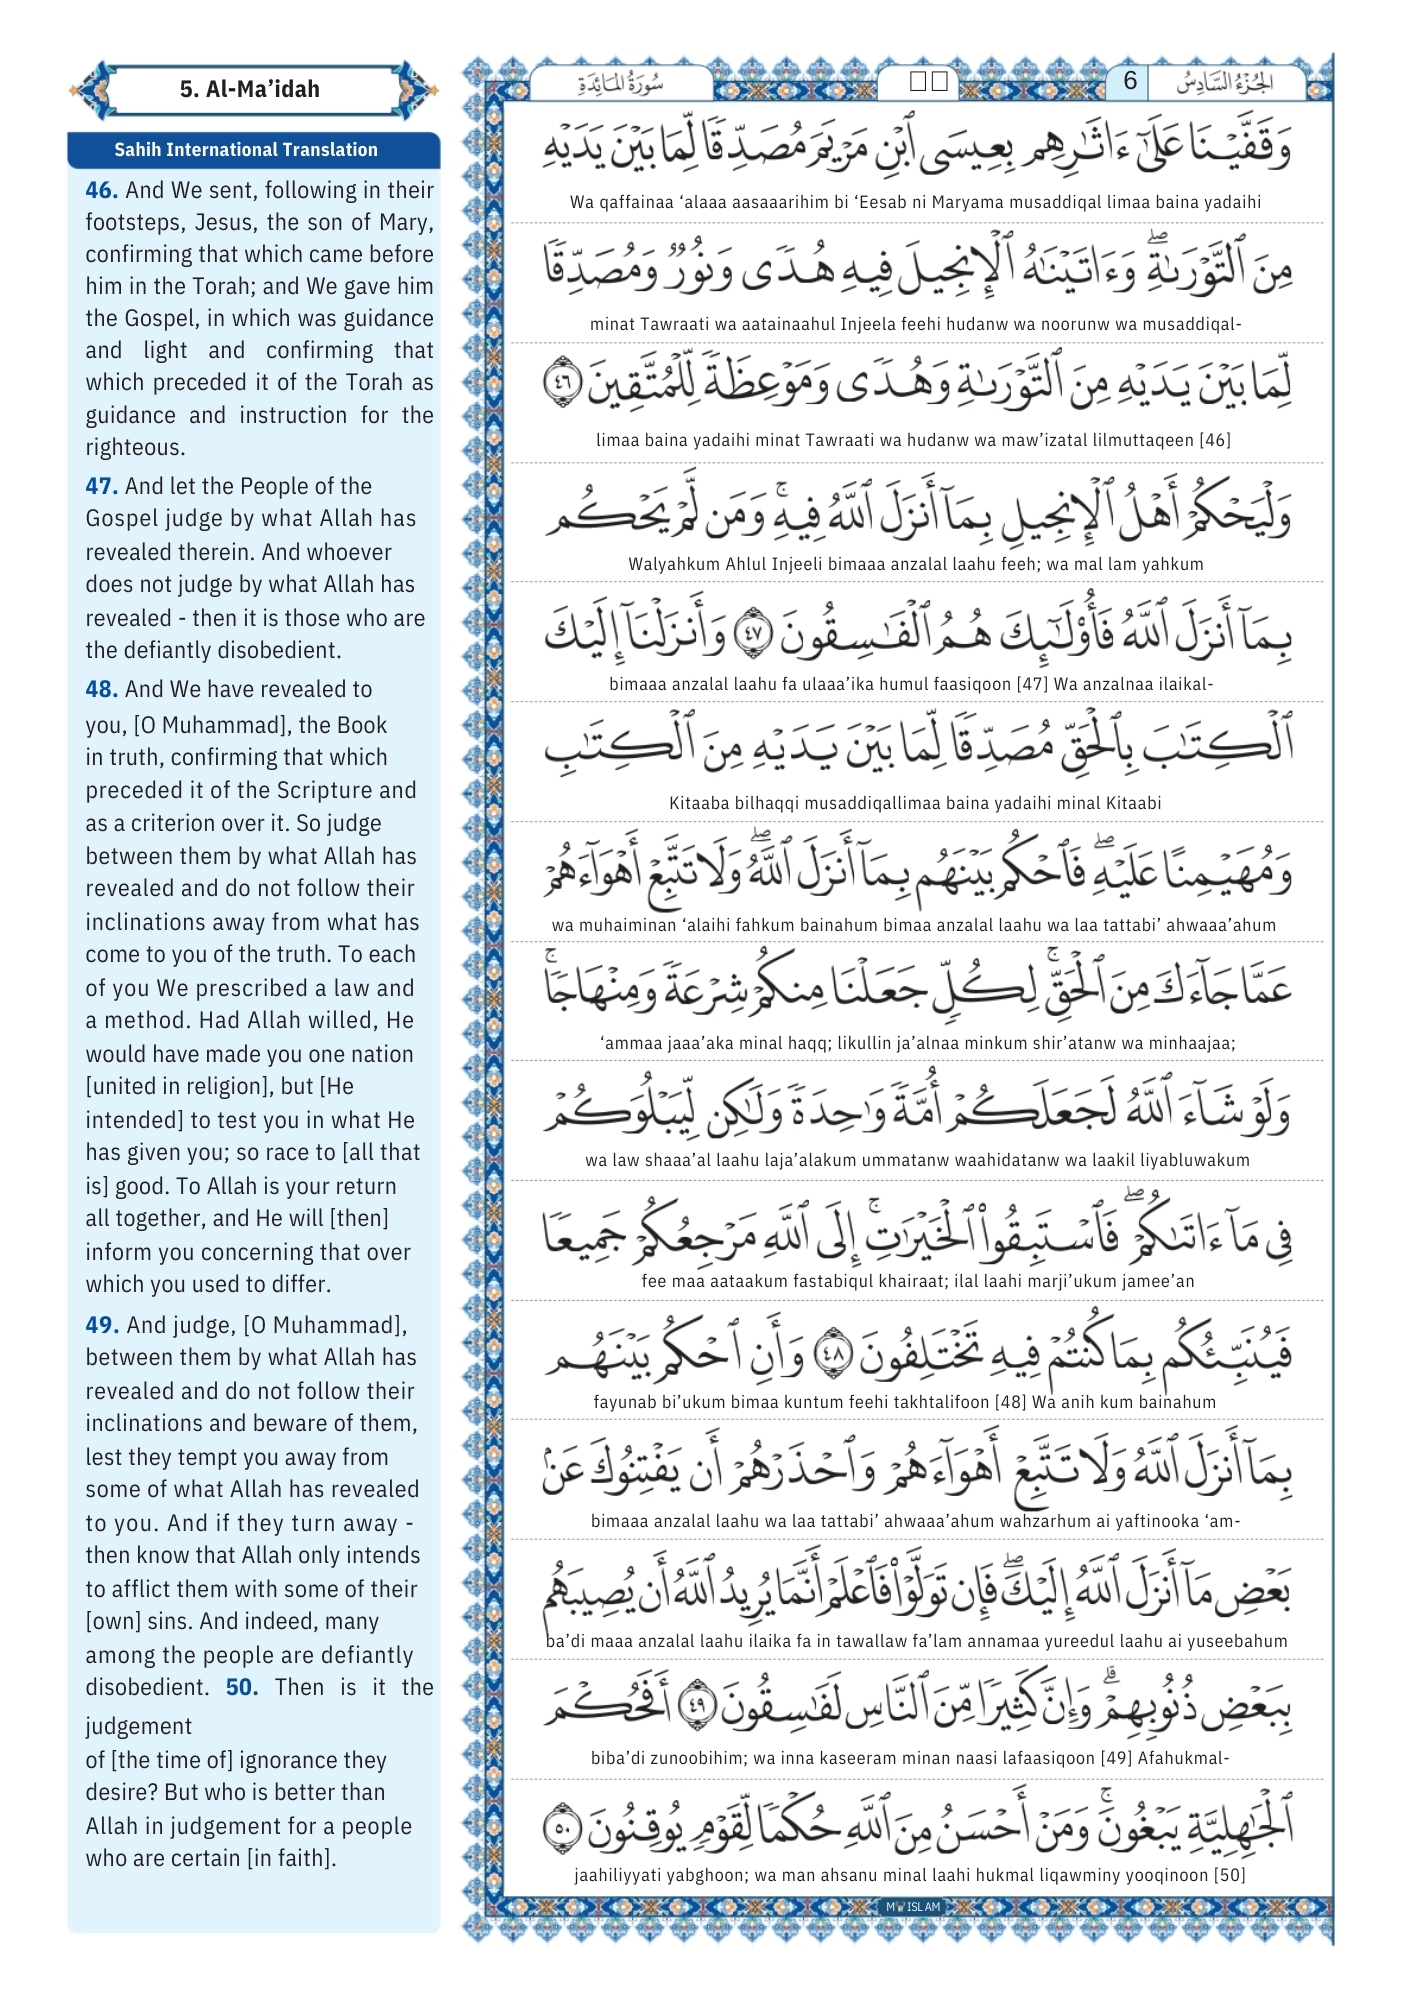 5. Al-Ma’idah
Sahih International Translation
46. And We sent, following in their
footsteps, Jesus, the son of Mary,
confirming that which came before
him in the Torah; and We gave him
the Gospel, in which was guidance
and light and confirming that
which preceded it of the Torah as
guidance and instruction for the
righteous.
47. And let the People of the
Gospel judge by what Allah has
revealed therein. And whoever
does not judge by what Allah has
revealed - then it is those who are
the defiantly disobedient.
48. And We have revealed to
you, [O Muhammad], the Book
in truth, confirming that which
preceded it of the Scripture and
as a criterion over it. So judge
between them by what Allah has
revealed and do not follow their
inclinations away from what has
come to you of the truth. To each
of you We prescribed a law and
a method. Had Allah willed, He
would have made you one nation
[united in religion], but [He
intended] to test you in what He
has given you; so race to [all that
is] good. To Allah is your return
all together, and He will [then]
inform you concerning that over
which you used to differ.
49. And judge, [O Muhammad],
between them by what Allah has
revealed and do not follow their
inclinations and beware of them,
lest they tempt you away from
some of what Allah has revealed
to you. And if they turn away -
then know that Allah only intends
to afflict them with some of their
[own] sins. And indeed, many
among the people are defiantly
disobedient. 50. Then is it the
judgement
of [the time of] ignorance they
desire? But who is better than
Allah in judgement for a people
who are certain [in faith].
سُورَةُ المَائِدَةِ
6
الجُزْءُ السَّادِسُ
وَقَفَّيْنَا عَلَىٰٓ ءَاثَٰرِهِم بِعِيسَى ٱبْنِ مَرْيَمَ مُصَدِّقًا لِّمَا بَيْنَ يَدَيْهِ
Wa qaffainaa ‘alaaa aasaaarihim bi ‘Eesab ni Maryama musaddiqal limaa baina yadaihi
مِنَ ٱلتَّوْرَىٰةِ ۖ وَءَاتَيْنَٰهُ ٱلْإِنجِيلَ فِيهِ هُدًى وَنُورٌ وَمُصَدِّقًا
minat Tawraati wa aatainaahul Injeela feehi hudanw wa noorunw wa musaddiqal-
لِّمَا بَيْنَ يَدَيْهِ مِنَ ٱلتَّوْرَىٰةِ وَهُدًى وَمَوْعِظَةً لِّلْمُتَّقِينَ ٤٦
limaa baina yadaihi minat Tawraati wa hudanw wa maw’izatal lilmuttaqeen [46]
وَلْيَحْكُمْ أَهْلُ ٱلْإِنجِيلِ بِمَآ أَنزَلَ ٱللَّهُ فِيهِ ۚ وَمَن لَّمْ يَحْكُم
Walyahkum Ahlul Injeeli bimaaa anzalal laahu feeh; wa mal lam yahkum
بِمَآ أَنزَلَ ٱللَّهُ فَأُو۟لَٰٓئِكَ هُمُ ٱلْفَٰسِقُونَ ٤٧ وَأَنزَلْنَآ إِلَيْكَ
bimaaa anzalal laahu fa ulaaa’ika humul faasiqoon [47] Wa anzalnaa ilaikal-
ٱلْكِتَٰبَ بِٱلْحَقِّ مُصَدِّقًا لِّمَا بَيْنَ يَدَيْهِ مِنَ ٱلْكِتَٰبِ
Kitaaba bilhaqqi musaddiqallimaa baina yadaihi minal Kitaabi
وَمُهَيْمِنًا عَلَيْهِ ۖ فَٱحْكُم بَيْنَهُم بِمَآ أَنزَلَ ٱللَّهُ ۖ وَلَا تَتَّبِعْ أَهْوَآءَهُمْ
wa muhaiminan ‘alaihi fahkum bainahum bimaa anzalal laahu wa laa tattabi’ ahwaaa’ahum
عَمَّا جَآءَكَ مِنَ ٱلْحَقِّ ۚ لِكُلٍّ جَعَلْنَا مِنكُمْ شِرْعَةً وَمِنْهَاجًا ۚ
‘ammaa jaaa’aka minal haqq; likullin ja’alnaa minkum shir’atanw wa minhaajaa;
وَلَوْ شَآءَ ٱللَّهُ لَجَعَلَكُمْ أُمَّةً وَٰحِدَةً وَلَٰكِن لِّيَبْلُوَكُمْ
wa law shaaa’al laahu laja’alakum ummatanw waahidatanw wa laakil liyabluwakum
فِى مَآ ءَاتَىٰكُمْ ۖ فَٱسْتَبِقُوا۟ ٱلْخَيْرَٰتِ ۚ إِلَى ٱللَّهِ مَرْجِعُكُمْ جَمِيعًا
fee maa aataakum fastabiqul khairaat; ilal laahi marji’ukum jamee’an
فَيُنَبِّئُكُم بِمَا كُنتُمْ فِيهِ تَخْتَلِفُونَ ٤٨ وَأَنِ ٱحْكُم بَيْنَهُم
fayunab bi’ukum bimaa kuntum feehi takhtalifoon [48] Wa anih kum bainahum
بِمَآ أَنزَلَ ٱللَّهُ وَلَا تَتَّبِعْ أَهْوَآءَهُمْ وَٱحْذَرْهُمْ أَن يَفْتِنُوكَ عَنۢ
bimaaa anzalal laahu wa laa tattabi’ ahwaaa’ahum wahzarhum ai yaftinooka ‘am-
بَعْضِ مَآ أَنزَلَ ٱللَّهُ إِلَيْكَ ۖ فَإِن تَوَلَّوْا۟ فَٱعْلَمْ أَنَّمَا يُرِيدُ ٱللَّهُ أَن يُصِيبَهُم
ba’di maaa anzalal laahu ilaika fa in tawallaw fa’lam annamaa yureedul laahu ai yuseebahum
بِبَعْضِ ذُنُوبِهِمْ ۗ وَإِنَّ كَثِيرًا مِّنَ ٱلنَّاسِ لَفَٰسِقُونَ ٤٩ أَفَحُكْمَ
biba’di zunoobihim; wa inna kaseeram minan naasi lafaasiqoon [49] Afahukmal-
ٱلْجَٰهِلِيَّةِ يَبْغُونَ ۚ وَمَنْ أَحْسَنُ مِنَ ٱللَّهِ حُكْمًا لِّقَوْمٍ يُوقِنُونَ ٥٠
jaahiliyyati yabghoon; wa man ahsanu minal laahi hukmal liqawminy yooqinoon [50]
MY ISLAM